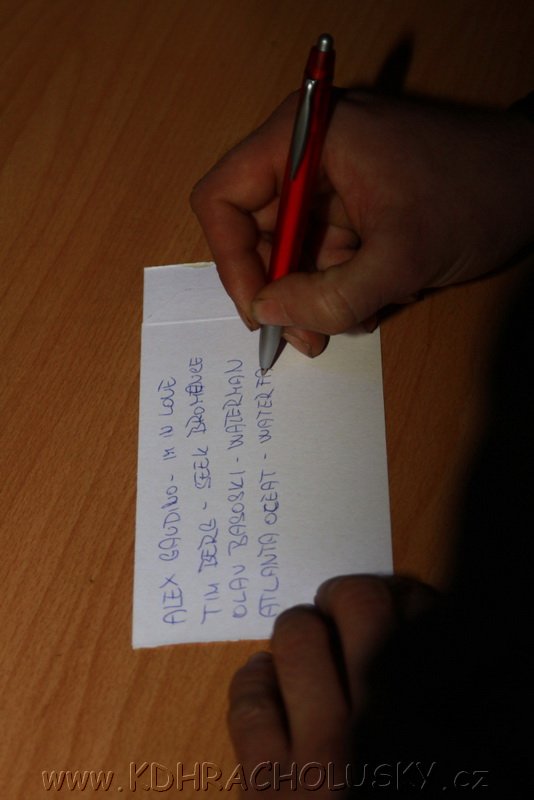 ALEX GAUDINO - IM IN LOVE
TIM BERG - SEEK BROMANCE
OLAV BASOSKI - WATERMAN
ATLANTA OCEAT - WATERFA
www.KDHRACHOLUSKY.cz